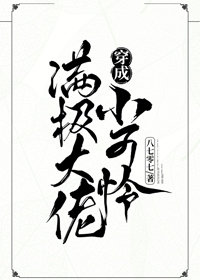 满极大佬
穿成
小可怜
八七零七 著